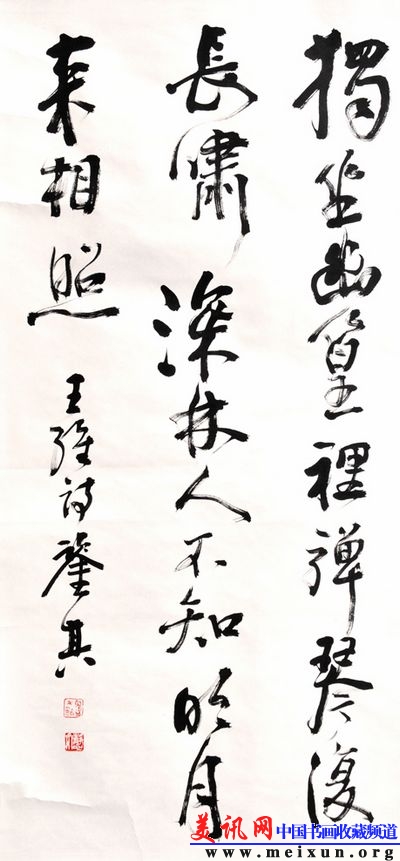 獨坐幽篁裡彈琴復
長嘯深林人不知明月
来相照
王維詩鑒其
美讯网 中国书画收藏频道
www.meixun.org